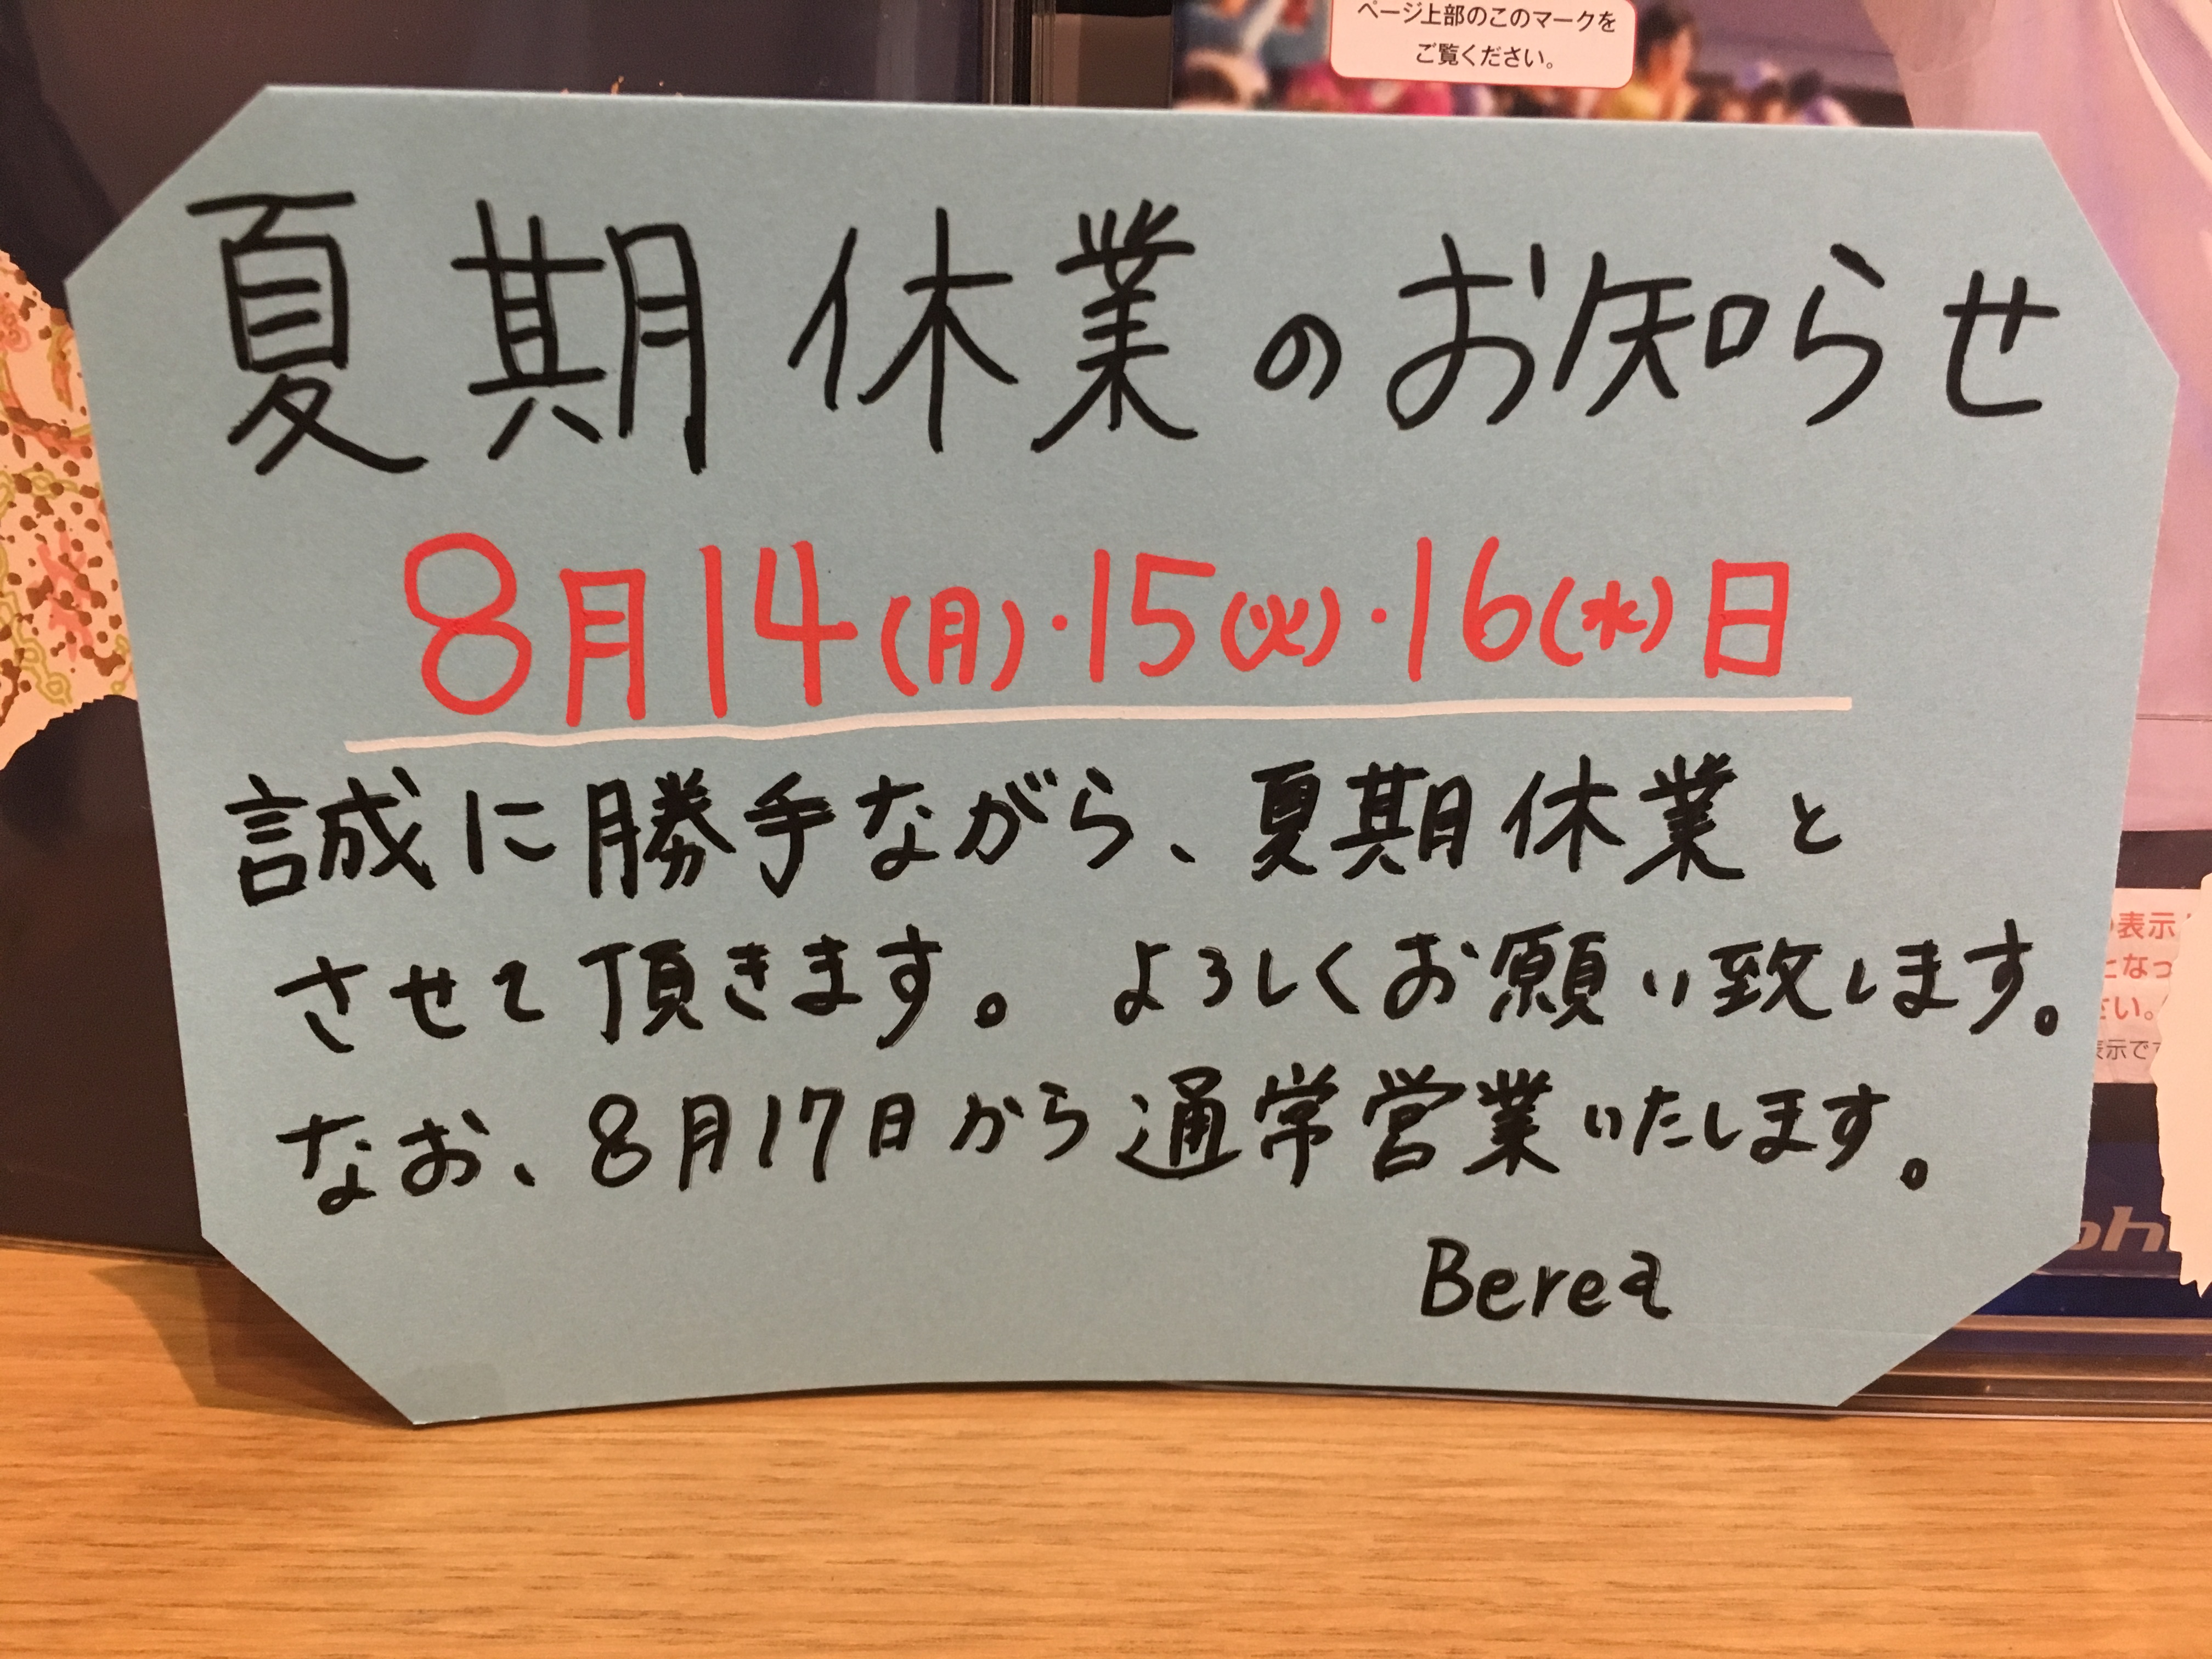 ページ上部のこのマークを
ご覧ください。
夏期休業のお知らせ
8月14(月)・15(火)・16(水)日
誠に勝手ながら、夏期休業と
させて頂きます。 よろしくお願い致します。
なお、8月17日から通常営業いたします。
Berea
表示
となっ
さい。
表示で